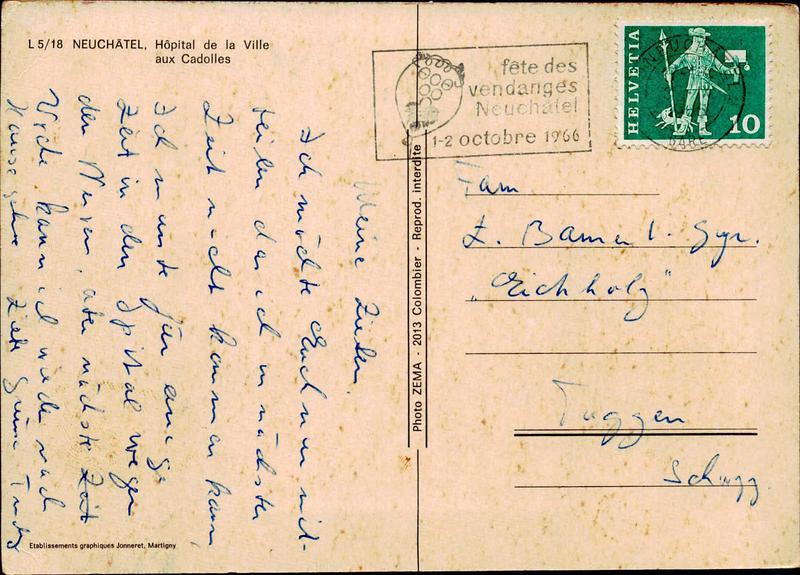 L 5/18 NEUCHÂTEL, Hôpital de la Ville
aux Cadolles
Meine Lieben,
Ich möchte Euch nur mit-
teilen das ich in nächster
Zeit nicht kommen kann,
Ich musste für einige
Zeit in den Spital wegen
den Nerven, aber nächste Zeit
Woche kann ich wieder nach
Hause gehen Liebe Grüsse Trudy
Etablissements graphiques Jonneret, Martigny
Photo ZEMA - 2013 Colombier - Reprod. interdite
fête des
vendanges
Neuchâtel
1-2 octobre 1966
NEUCHATEL
HELVETIA
10
Fam
Z. Bamert-
„Eichholz"
Tuggen
Schwyz